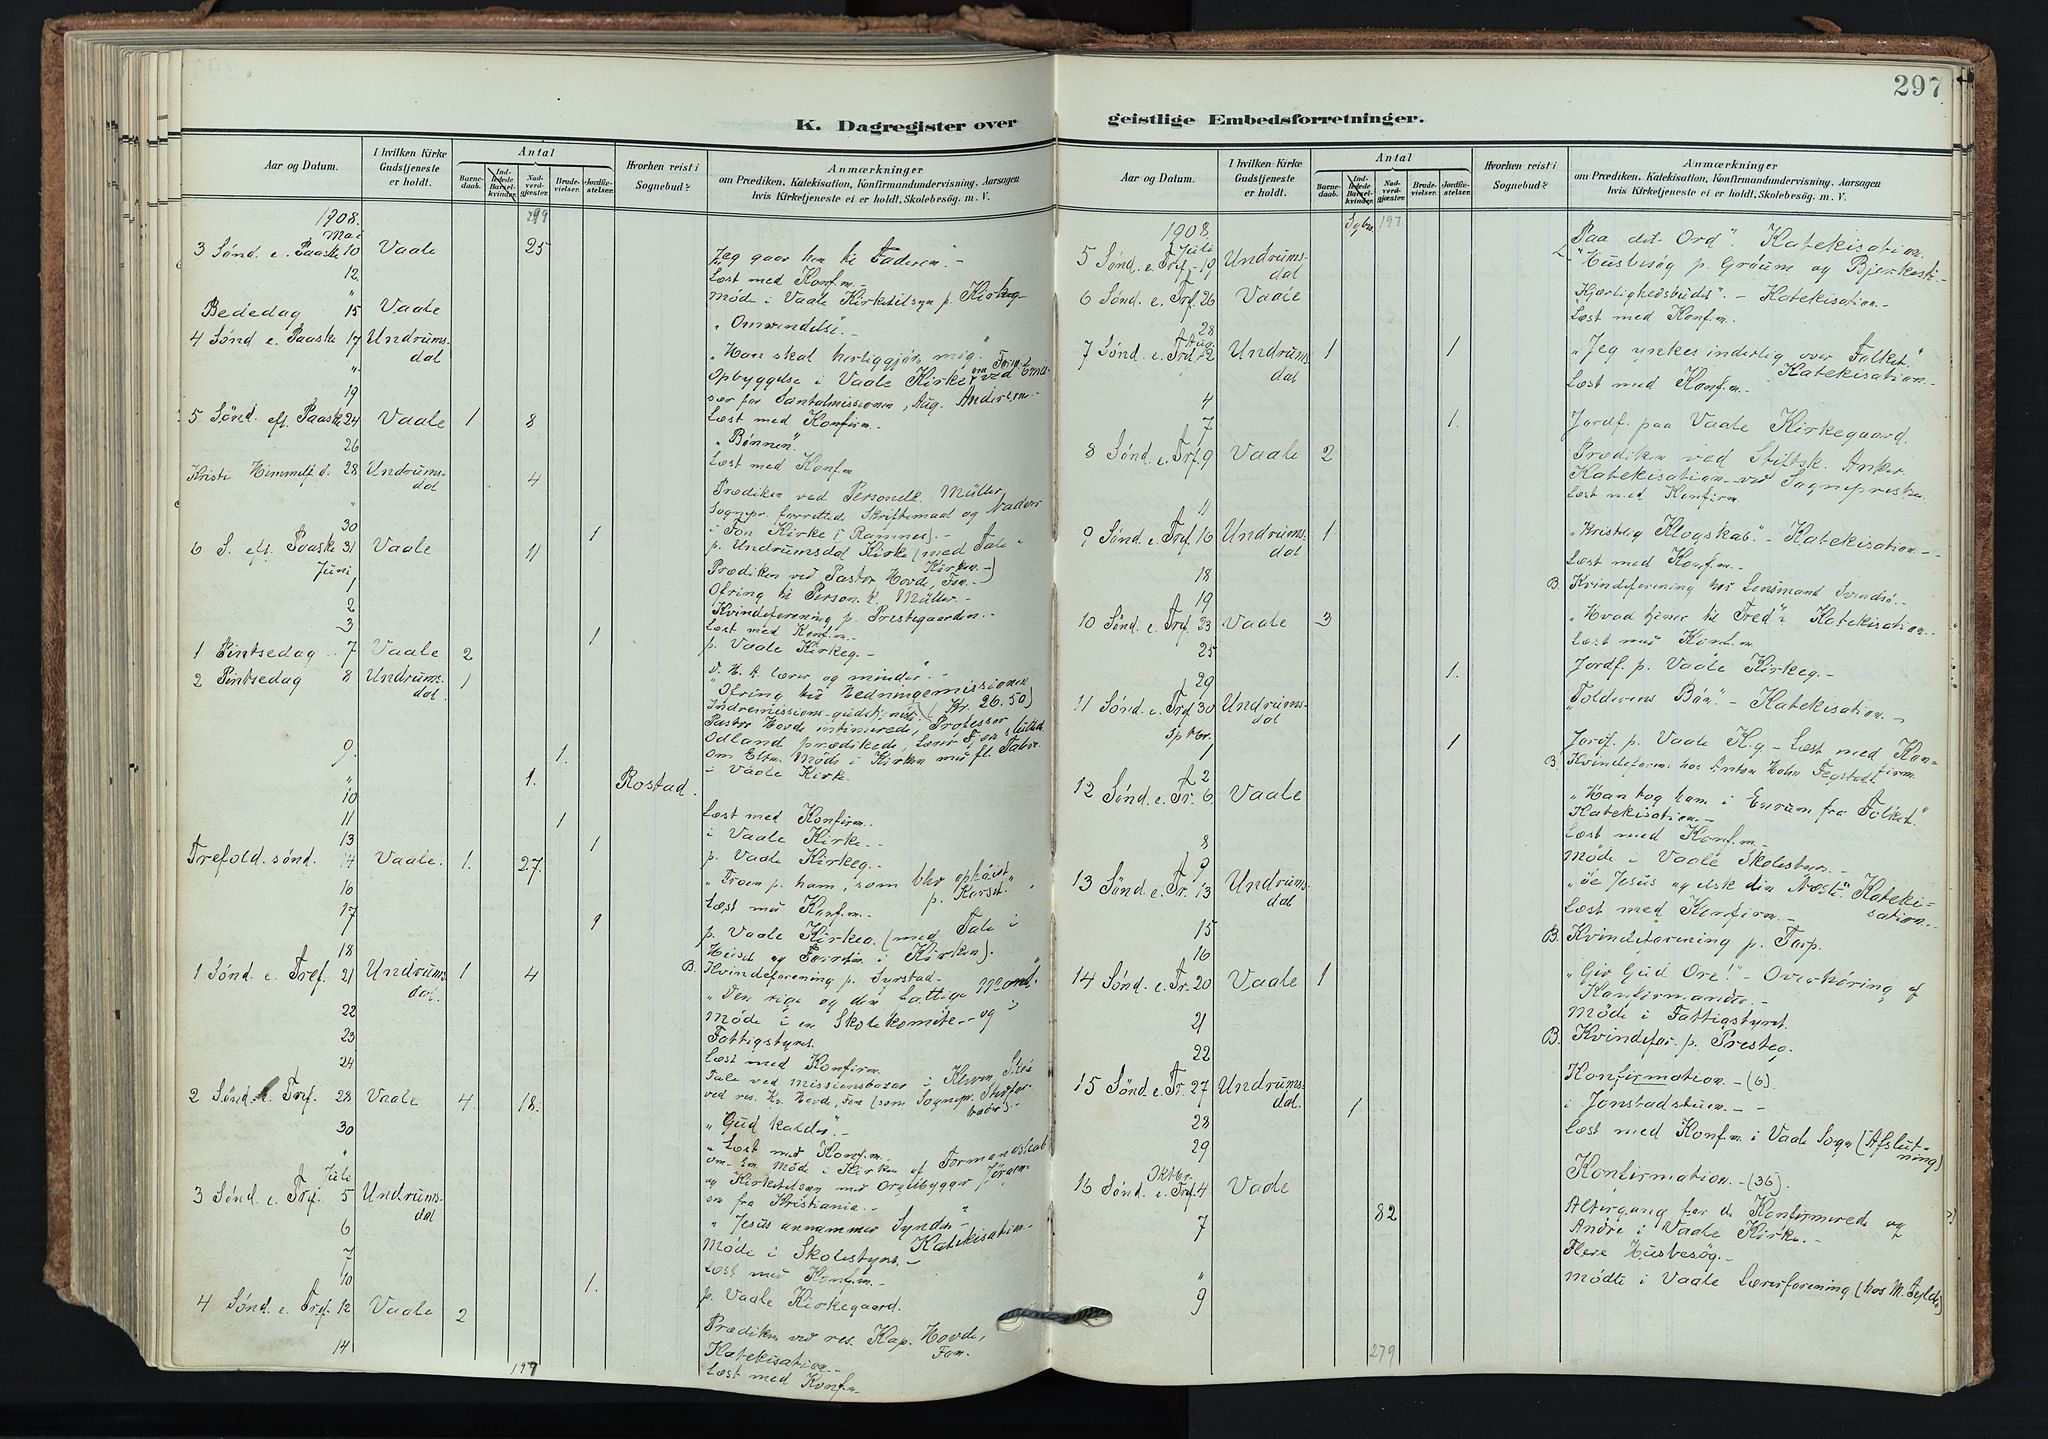 297
K. Dagregister over
geistlige Embedsforretninger.
Aar og Datum.
I hvilken Kirke
Gudstjeneste
er holdt.
Antal
Barne-
daab.
Ind-
ledede
Barsel-
kvinder.
Nad-
verd-
gjester.
Brude-
vielser.
Jordfæ-
stelser.
Hvorhen reist i
Sognebud?
Anmærkninger
om Prædiken, Katekisation, Konfirmandundervisning, Aarsagen
hvis Kirketjeneste ei er holdt, Skolebesög m. V.
1908
Mai
3 Sønd. e. Paaske 10 Vaale 25 Jeg gaar hen til Faderen".-
12 Læst med Konf.m.-
" Møde i Vaale Kirketilsyn p. Kirkeg-
Bededag 15 Vaale "Omvendelse".-
4 Sønd e. Paaske 17 Undrums-
dal "Han skal herliggjøre mig."
" Opbyggelse i Vaale Kirke ved Emis-
sær for Santalmissionen, Aug. Andersen.-
19 Læst med Konfirm.-
5 Sønd. eft. Paaske 24 Vaale 1 8 "Bønnen".
26 Læst med Konf.m
Kristi Himmelf. d. 28 Undrums-
dal 4 Prædiken ved Personelk. Müller
" Sognepr. forrettede Skriftemaal og Nadver
i Fon Kirke (i Ramnes).-
30 1 p. Undrumsdal Kirke (med Tale i
Kirken.-)
6 S. eft. Paaske 31 Vaale 11 Prædiken ved Pastor Hovde, Fon.-
Ofring til Person. k. Müller.-
Juni
1 Kvindeforening p. Prestegaarden.-
2 Læst med Konf.m.-
3 1 p. Vaale Kirkeg.-
1 Pintsedag 7 Vaale 2 "D. H. A. lærer og minder".-
Ofring til Hedningemissionen
(Kr. 26.50)
2 Pintsedag 8 Undrums-
dal. 1 Indremissions-gudstjeneste.
Pastor Hovde intimerede, Professor
Odland prædikede,
om Eftm. Møde i Kirken
9. 1. i Vaale Kirke.
" 1. Rostad.
10 Læst med Konfirm.
11 1 i Vaale Kirke.-
13 1 p. Vaale Kirkeg.-
Trefold. sønd. 14 Vaale. 1. 27. "Troen p. ham, som blev ophøiet
p. Korset."
16 Læst med Konf.m.-
17 9 p. Vaale Kirkeg. (med Tale i
Kirken).
18 B. Kvindeforening p.
1 Sønd. e. Tref. 21 Undrums-
dal. 1 4 "Den rige og den fattige Mand."
22 Møde i en Skolekomite- og
23 Fattigstyret.
24 Læst med Konfirm.
Tale ved missionsbasar i
ved res. Kp. Hovde, Fon (som Sognepr.
2 Sønd. e. Tref. 28 Vaale 4. 18. "Gud kalder".-
30 "Læst med Konf.m.-
" om Em. Møde i Kirken af Formandskab
og Kirketilsyn med Orgelbygger Jørgen-
sen fra Kristiania.-
Juli
3 Sønd e. Tref. 5 Undrums-
dal "Jesus annammer Syndere"
Katekisation.-
6 Møde i Skolestyret.-
7 Læst med Konf.m.-
10 1. p. Vaale Kirkegaard.
4 Sønd. e. Tref. 12 Vaale 2 Prædiken ved res. Kap. Hovde,
Fon.
Katekisation.-
14 Læst med Konf.m.
197
Aar og Datum.
I hvilken Kirke
Gudstjeneste
er holdt.
Antal
Barne-
daab.
Ind-
ledede
Barsel-
kvinder.
Nad-
verd-
gjester.
Brude-
vielser.
Jordfæ-
stelser.
Hvorhen reist i
Sognebud?
Anmærkninger
om Prædiken, Katekisation, Konfirmandundervisning, Aarsagen
hvis Kirketjeneste ei er holdt, Skolebesög m. V.
197
1908
Juli
5 Sønd. e. Tref. 19 Undrums-
dal "Paa dit Ord". Katekisation.
Husbesøg p. Gråum og
6 Sønd. e. Tref. 26 Vaale "Kjærlighedsbudet".- Katekisation.-
28 Læst med Konf.m.
Aug.
7 Sønd. e. Tref. 2 Undrums-
dal 1 1 "Jeg ynkes inderlig over Folket."
Katekisation.-
4 Læst med Konf.m.-
7 1. Jordf. paa Vaale Kirkegaard.
8 Sønd. e. Tref. 9 Vaale 2 Prædiken ved Stiftsk. Anker
Katekisation ved Sognepresten.
11 Læst med Konfirm.
9 Sønd. e. Tref. 16 Undrums-
dal 1 "Kristelig Klogskab".- Katekisation.-
18 Læst med Konf.m.-
19 B. Kvindeforening hos Lensmand
10 Sønd. e. Tref. 23 Vaale 3 "Hvad tjener til Fred". Katekisation.
25 Læst med Konf.m
29 1. Jordf. p. Vaale Kirkeg.-
11 Sønd. e. Tref. 30 Undrums-
dal "Tolderens Bøn".- Katekisation.-
Sptbr.
1 1 Jordf. p. Vaale K.g - Læst med Kon-
firm.
2 B. Kvindeforen. hos Anton Holm
12 Sønd. e. Tr. 6 Vaale "Han tog ham i Enrum fra Folket".
Katekisation.-
8 Læst med Konf.m.-
9 Møde i Vaale Skolestyre.-
13 Sønd. e. Tr. 13 Undrums-
dal "Se Jesus og elsk din Næste." Kateki-
sation.-
15 Læst med Konfirm.-
16 B. Kvindeforening p. Tarp.
14 Sønd. e. Tr. 20 Vaale 1 "Giv Gud Ære!"- Overhøring af
Konfirmander.-
21 Møde i Fattigstyret.
22 B. Kvindefor. p. Presteg.
15 Sønd. e. Tr. 27 Undrums-
dal. Konfirmation.-(6).
28 1 i Jonstadstuen.-
29 Læst med Konf.m. i Vaale Sogn (Afslut-
ning)
Oktbr.
16 Sønd. e. Tref. 4 Vaale Konfirmation.-(36).
7 82 Altergang for de Konfirmerede og
Andre i Vaale Kirke.-
" Flere Husbesøg.-
9 Mødte i Vaale Lærerforening
279